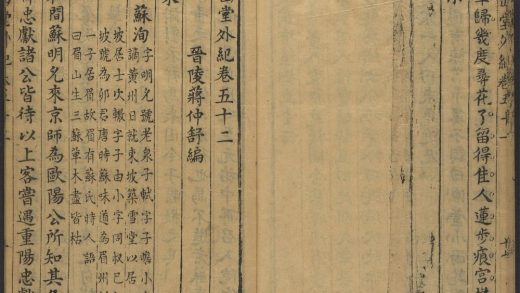 章歸幾度尋花了留得佳人蓮步痕宮
堂外紀卷五十二
晉陵蔣仲舒編
蘇洵
字明允號老泉子軾字子瞻小
謫黃州日就東坡築雪堂以居
坡居士次轍字子由小字同叔已
坡號為卯君唐時蘇味道為眉州
一子居蜀故蜀有蘇氏時人語
曰眉山生三蘇草木盡皆枯
間蘇明允來京師為歐陽公所知其
忠獻諸公皆待以上客嘗遇重陽忠獻